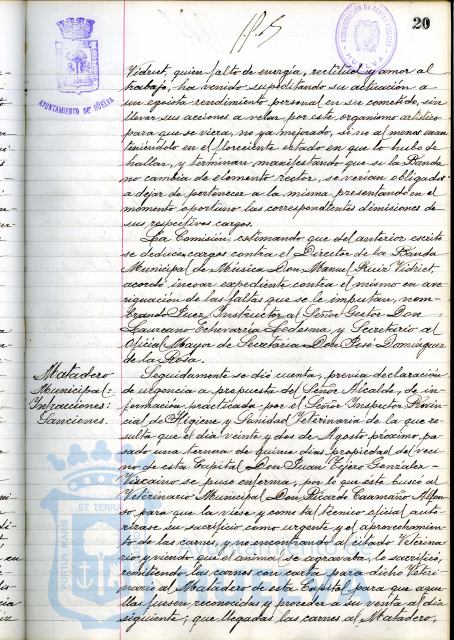 20
AYUNTAMIENTO DE HUELVA
Vidriet, quien falto de energía, rectitud y amor al
trabajo, ha venido supeditando su actuación a
un egoista rendimiento personal en su cometido, sin
llevar sus acciones a velar por este organismo artístico
para que se viera, no ya mejorado, si no al menos man
teniéndolo en el floreciente estado en que lo hubo de
hallar, y terminan manifestando que si la Banda
no cambia de elemento rector, se verían obligados
a dejar de pertenecer a la misma, presentando en el
momento oportuno las correspondientes dimisiones de
sus respectivos cargos.
La Comisión, estimando que del anterior escrito
se deducen cargos contra el Director de la Banda
Municipal de Música Don Manuel Ruiz Vidriet,
acordó incoar expediente contra el mismo en ave
riguación de las faltas que se le imputan, nom-
brando Juez Instructor al Señor Gestor Don
Laureano Echevarría Ledesma, y Secretario al
Oficial Mayor de Secretaria Don José Domínguez
de la Rosa.
Matadero
Municipal:
Infracciones:
Sanciones.
Seguidamente se dió cuenta, previa declaración
de urgencia a propuesta del Señor Alcalde, de in-
formación practicada por el Señor Inspector Provin
cial de Higiene y Sanidad Veterinaria de la que re
sulta que el día veinte y dos de Agosto próximo pa
sado una ternera de quince días propiedad del veci
no de esta Capital Don Juan Tejero Gonzalez-
Vizcaino se puso enferma, por lo que este buscó al
Veterinario Municipal Don Ricardo Caamaño Alfon
so para que la viese y como tal técnico oficial auto
rizase su sacrificio como urgente y el aprovechamien
to de las carnes, y no encontrando al citado Veterina
rio y viendo que el animal se agravaba, lo sacrificó,
remitiendo las carnes con carta para dicho Veteri
nario al Matadero de esta Capital para que aque
llas fuesen reconocidas y proceder a su venta al día
siguiente; que llegadas las carnes al Matadero,